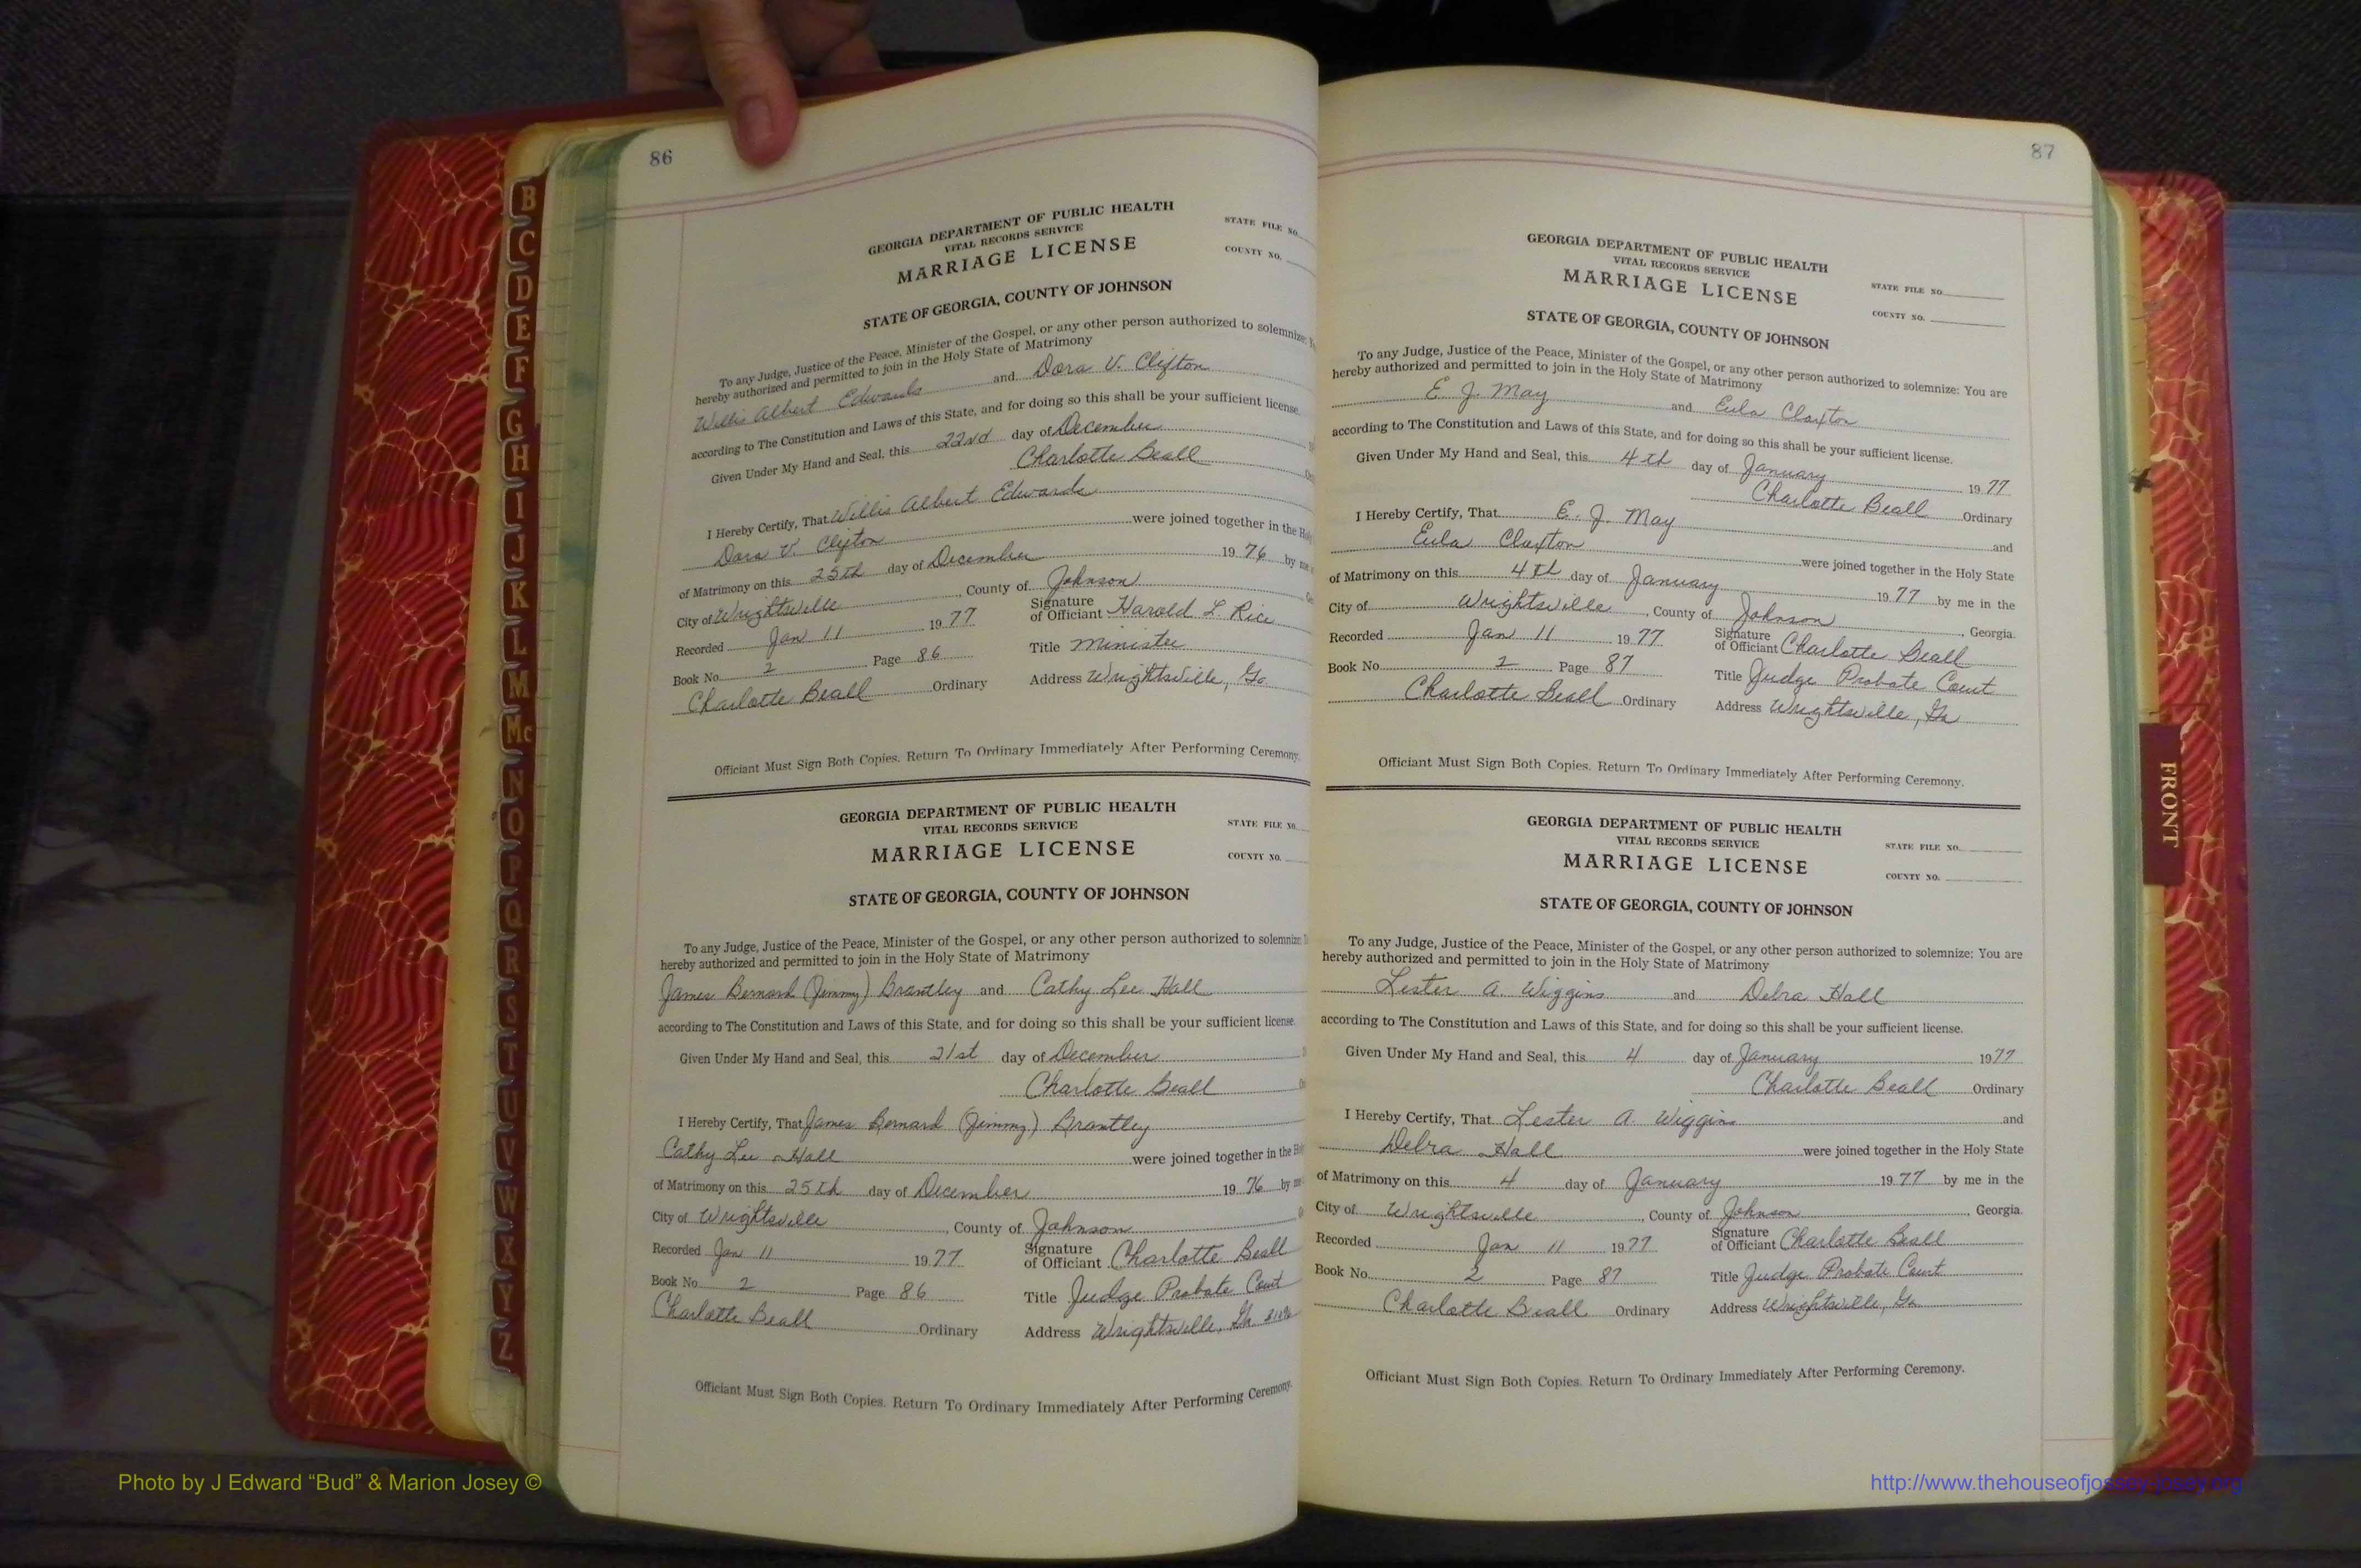 86
GEORGIA DEPARTMENT OF PUBLIC HEALTH
VITAL RECORDS SERVICE
MARRIAGE LICENSE
STATE FILE NO.
COUNTY NO.
STATE OF GEORGIA, COUNTY OF JOHNSON
To any Judge, Justice of the Peace, Minister of the Gospel, or any other person authorized to solemnize:
hereby authorized and permitted to join in the Holy State of Matrimony
Willis Albert Edwards and Dora V. Clifton
according to The Constitution and Laws of this State, and for doing so this shall be your sufficient license.
Given Under My Hand and Seal, this 22nd day of December
Charlotte Beall
I Hereby Certify, That Willis Albert Edwards
Dora V. Clifton were joined together in the
of Matrimony on this 25th day of December 1976 by me
City of Wrightsville, County of Johnson
Recorded Jan 11 1977 Signature of Officiant Harold L Rice
Book No. 2 Page 86 Title Minister
Charlotte Beall Ordinary Address Wrightsville, Ga
Officiant Must Sign Both Copies. Return To Ordinary Immediately After Performing Ceremony.
GEORGIA DEPARTMENT OF PUBLIC HEALTH
VITAL RECORDS SERVICE
MARRIAGE LICENSE
STATE FILE NO.
COUNTY NO.
STATE OF GEORGIA, COUNTY OF JOHNSON
To any Judge, Justice of the Peace, Minister of the Gospel, or any other person authorized to solemnize
hereby authorized and permitted to join in the Holy State of Matrimony
James Bernard (Jimmy) Brantley and Cathy Lee Hall
according to The Constitution and Laws of this State, and for doing so this shall be your sufficient license.
Given Under My Hand and Seal, this 21st day of December
Charlotte Beall
I Hereby Certify, That James Bernard (Jimmy) Brantley
Cathy Lee Hall were joined together in the
of Matrimony on this 25th day of December 1976 by
City of Wrightsville, County of Johnson
Recorded Jan 11 1977 Signature of Officiant Charlotte Beall
Book No. 2 Page 86 Title Judge Probate Court
Charlotte Beall Ordinary Address Wrightsville, Ga
Officiant Must Sign Both Copies. Return To Ordinary Immediately After Performing Ceremony.
87
GEORGIA DEPARTMENT OF PUBLIC HEALTH
VITAL RECORDS SERVICE
MARRIAGE LICENSE
STATE FILE NO.
COUNTY NO.
STATE OF GEORGIA, COUNTY OF JOHNSON
To any Judge, Justice of the Peace, Minister of the Gospel, or any other person authorized to solemnize: You are
hereby authorized and permitted to join in the Holy State of Matrimony
E. J. May and Eula Claxton
according to The Constitution and Laws of this State, and for doing so this shall be your sufficient license.
Given Under My Hand and Seal, this 4th day of January 1977
Charlotte Beall Ordinary
I Hereby Certify, That E. J. May and
Eula Claxton were joined together in the Holy State
of Matrimony on this 4th day of January 1977 by me in the
City of Wrightsville, County of Johnson, Georgia.
Recorded Jan 11 1977 Signature of Officiant Charlotte Beall
Book No. 2 Page 87 Title Judge Probate Court
Charlotte Beall Ordinary Address Wrightsville, Ga
Officiant Must Sign Both Copies. Return To Ordinary Immediately After Performing Ceremony.
GEORGIA DEPARTMENT OF PUBLIC HEALTH
VITAL RECORDS SERVICE
MARRIAGE LICENSE
STATE FILE NO.
COUNTY NO.
STATE OF GEORGIA, COUNTY OF JOHNSON
To any Judge, Justice of the Peace, Minister of the Gospel, or any other person authorized to solemnize: You are
hereby authorized and permitted to join in the Holy State of Matrimony
Lester A. Wiggins and Debra Hall
according to The Constitution and Laws of this State, and for doing so this shall be your sufficient license.
Given Under My Hand and Seal, this 4 day of January 1977
Charlotte Beall Ordinary
I Hereby Certify, That Lester A. Wiggins and
Debra Hall were joined together in the Holy State
of Matrimony on this 4 day of January 1977 by me in the
City of Wrightsville, County of Johnson, Georgia.
Recorded Jan 11 1977 Signature of Officiant Charlotte Beall
Book No. 2 Page 87 Title Judge Probate Court
Charlotte Beall Ordinary Address Wrightsville, Ga.
Officiant Must Sign Both Copies. Return To Ordinary Immediately After Performing Ceremony.
B
C
D
E
F
G
H
I
J
K
L
M
Mc
N
O
P
Q
R
S
T
U
V
W
X
Y
Z
FRONT
Photo by J Edward “Bud” & Marion Josey ©
http://www.thehouseofjossey-josey.org